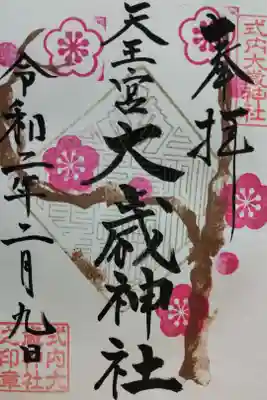 奉拝
式内大歳神社
天王宮大歳神社
令和二年二月九日
式内大歳神社之印章